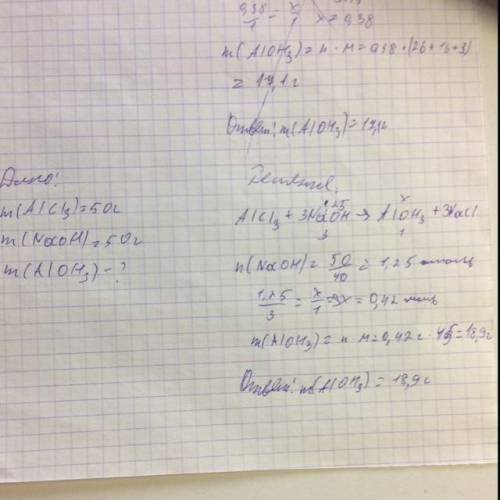 0,38/1 = x/1 x = 0,38
m(AlOH3) = n · M = 0,38 · (26+16+3)
= 17,1г
Ответ: m(AlOH3) = 17,1г
Дано:
m(AlCl3) = 50г
m(NaOH) = 50г
m(AlOH3) - ?
Решение.
1,25 x
AlCl3 + 3NaOH → AlOH3 + 3NaCl
3 1
n(NaOH) = 50/40 = 1,25 моль
1,25/3 = x/1 → x = 0,42 моль
m(AlOH3) = n · M = 0,42 · 45 = 18,9г
Ответ: m(AlOH3) = 18,9г